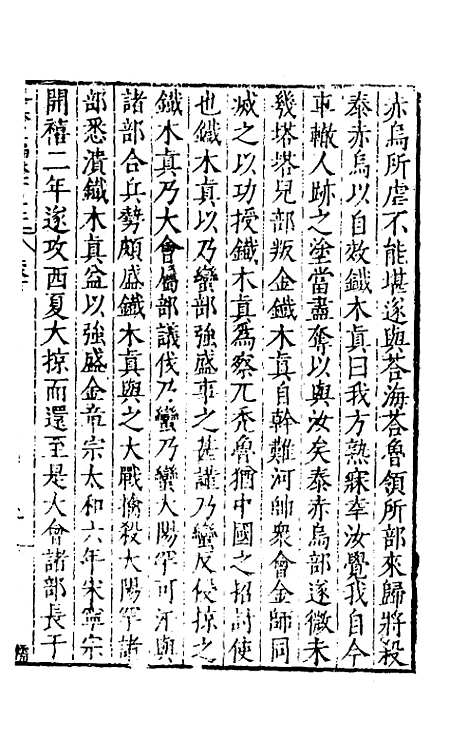 赤烏所虐不能堪遂與荅海荅魯領所部來歸將殺
泰赤烏以自效鐵木真曰我方熟寐幸汝覺我自今
車轍人跡之塗當盡奪以與汝矣泰赤烏部遂微未
幾塔塔兒部叛金鐵木真自幹難河帥衆會金師同
滅之以功授鐵木真爲察兀禿魯猶中國之招討使
也鐵木真以乃蠻部強盛事之甚謹乃蠻反侵掠之
鐵木真乃大會屬部議伐乃蠻乃蠻大陽罕可汗與
諸部合兵勢頗盛鐵木真與之大戰擒殺大陽罕諸
部悉潰鐵木真益以強盛金帝宗太和六年宋寧宗
開禧二年遂攻西夏大掠而還至是大會諸部長于